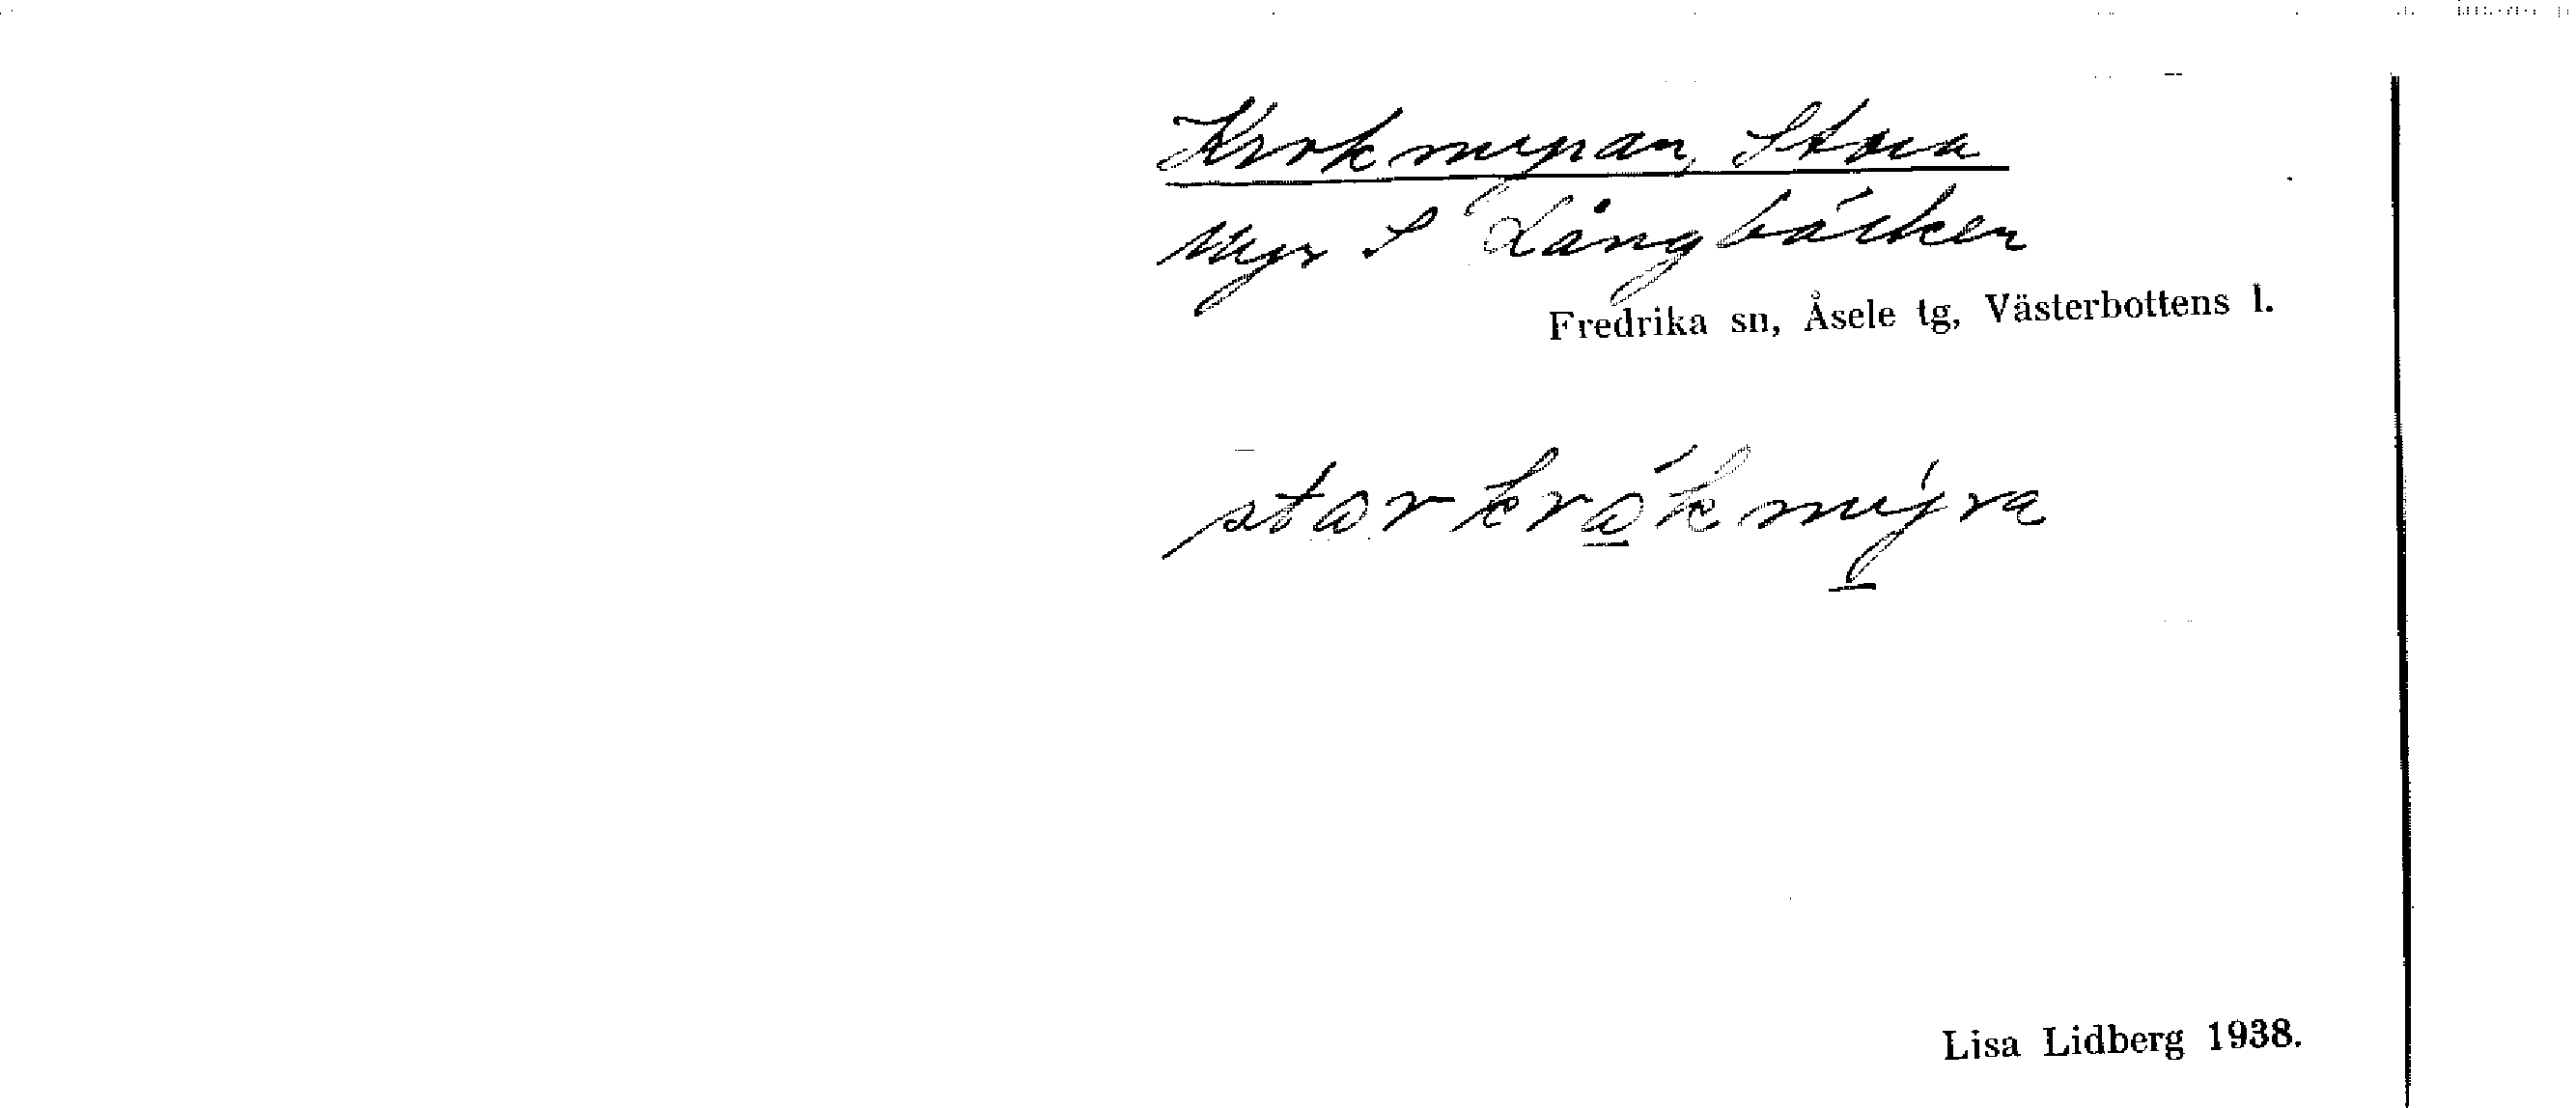 Krokmyran, Stora
Myr S Långbäcken
Fredrika sn, Åsele tg, Västerbottens l.
starkråkmýra
Lisa Lidberg 1938.